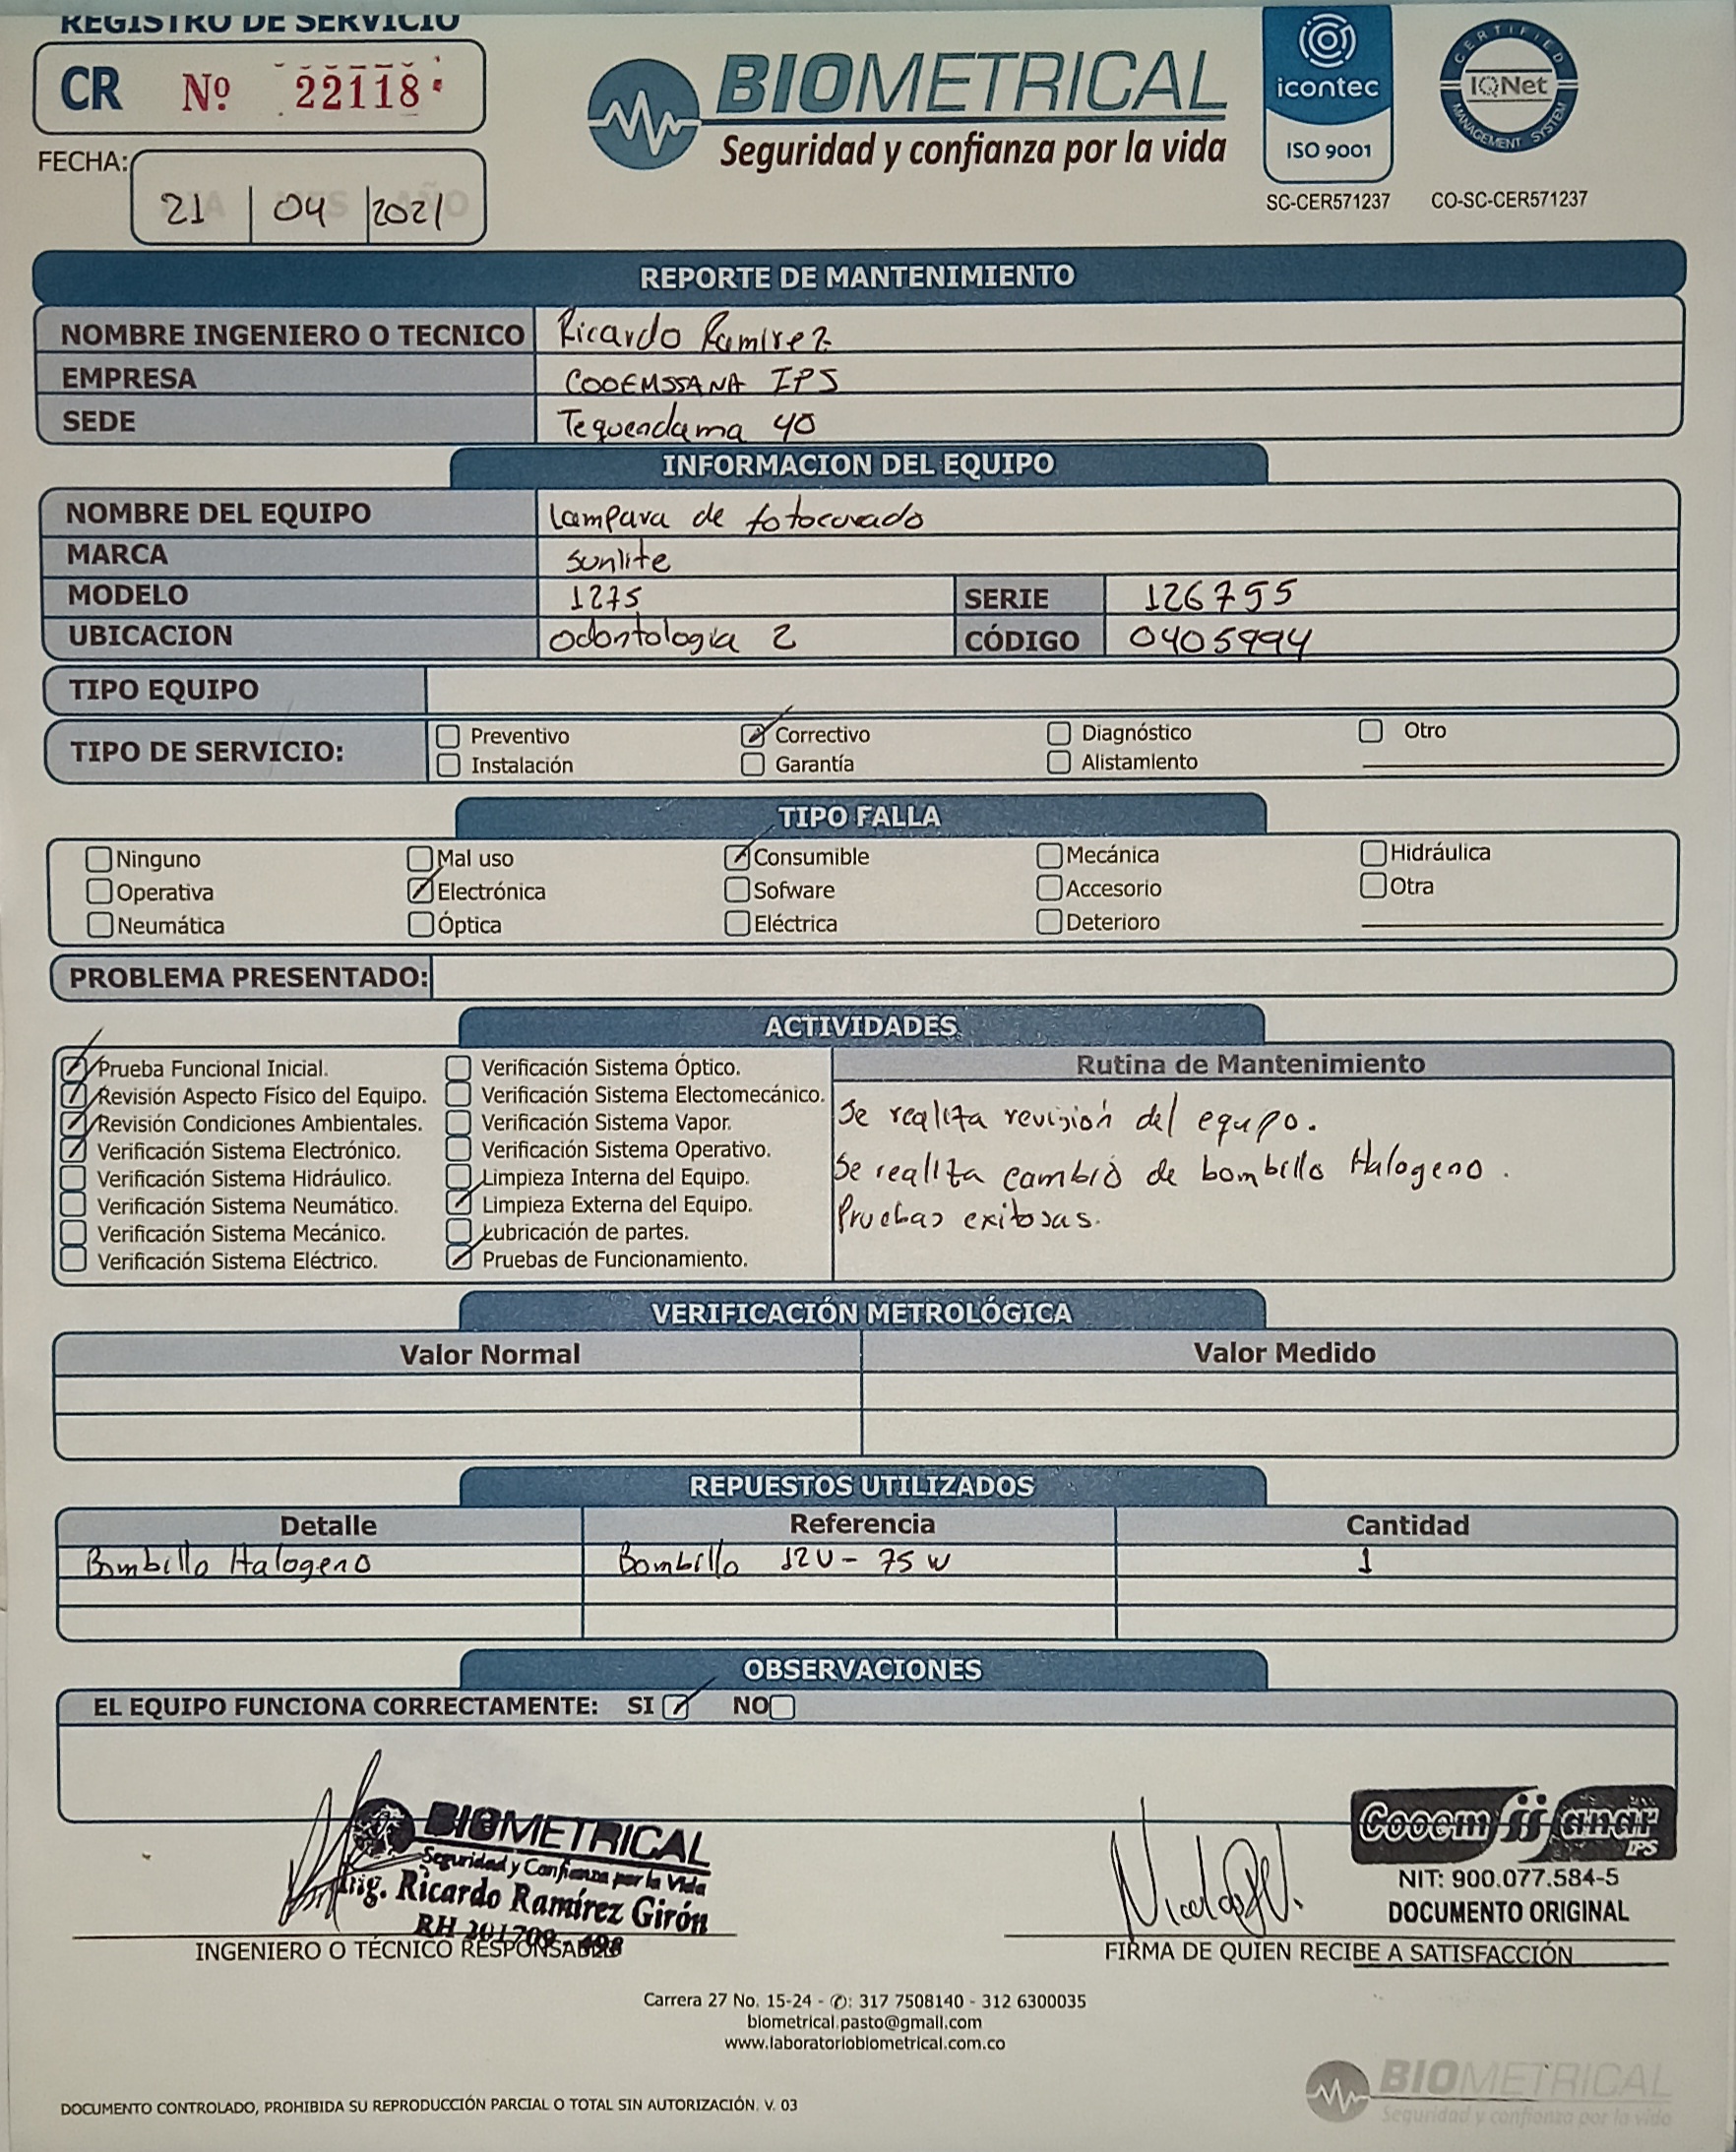 REGISTRO DE SERVICIO
CR Nº 22118
FECHA:
21 | 04 | 2021
BIOMETRICAL
Seguridad y confianza por la vida
icontec
ISO 9001
SC-CER571237
CERTIFIED
IQNet
MANAGEMENT SYSTEM
CO-SC-CER571237
REPORTE DE MANTENIMIENTO
NOMBRE INGENIERO O TECNICO Ricardo Ramirez
EMPRESA COOEMSSANA IPS
SEDE Tequendama 40
INFORMACION DEL EQUIPO
NOMBRE DEL EQUIPO Lampara de fotocurado
MARCA Sunlite
MODELO 1275 SERIE 126755
UBICACION Odontologia 2 CÓDIGO 0405994
TIPO EQUIPO
TIPO DE SERVICIO:
Preventivo Correctivo Diagnóstico Otro
Instalación Garantía Alistamiento
TIPO FALLA
Ninguno Mal uso Consumible Mecánica Hidráulica
Operativa Electrónica Sofware Accesorio Otra
Neumática Óptica Eléctrica Deterioro
PROBLEMA PRESENTADO:
ACTIVIDADES
Prueba Funcional Inicial.
Revisión Aspecto Físico del Equipo.
Revisión Condiciones Ambientales.
Verificación Sistema Electrónico.
Verificación Sistema Hidráulico.
Verificación Sistema Neumático.
Verificación Sistema Mecánico.
Verificación Sistema Eléctrico.
Verificación Sistema Óptico.
Verificación Sistema Electomecánico.
Verificación Sistema Vapor.
Verificación Sistema Operativo.
Limpieza Interna del Equipo.
Limpieza Externa del Equipo.
Lubricación de partes.
Pruebas de Funcionamiento.
Rutina de Mantenimiento
Se realiza revisión del equipo.
Se realiza cambio de bombillo Halogeno.
Pruebas exitosas.
VERIFICACIÓN METROLÓGICA
Valor Normal Valor Medido
REPUESTOS UTILIZADOS
Detalle Referencia Cantidad
Bombillo Halogeno Bombillo 12V - 75 W 1
OBSERVACIONES
EL EQUIPO FUNCIONA CORRECTAMENTE: SI NO
BIOMETRICAL
Seguridad y Confianza por la Vida
Ing. Ricardo Ramírez Girón
INGENIERO O TÉCNICO RESPONSABLE
Cooemssanar
IPS
NIT: 900.077.584-5
DOCUMENTO ORIGINAL
FIRMA DE QUIEN RECIBE A SATISFACCIÓN
Carrera 27 No. 15-24 - ✆: 317 7508140 - 312 6300035
biometrical.pasto@gmail.com
www.laboratoriobiometrical.com.co
BIOMETRICAL
Seguridad y confianza por la vida
DOCUMENTO CONTROLADO, PROHIBIDA SU REPRODUCCIÓN PARCIAL O TOTAL SIN AUTORIZACIÓN. V. 03